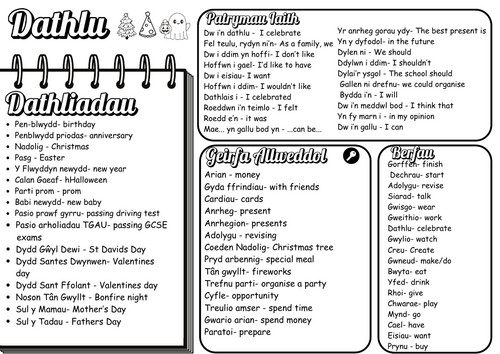 Dathlu
Dathliadau
Pen-blwydd- birthday
Penblwydd priodas- anniversary
Nadolig - Christmas
Pasg - Easter
Y Flwyddyn newydd- new year
Calan Gaeaf- hHalloween
Parti prom - prom
Babi newydd- new baby
Pasio prawf gyrru- passing driving test
Pasio arholiadau TGAU- passing GCSE
exams
Dydd Gŵyl Dewi - St Davids Day
Dydd Santes Dwynwen- Valentines
day
Dydd Sant Ffolant - Valentines day
Noson Tân Gwyllt - Bonfire night
Sul y Mamau- Mother's Day
Sul y Tadau - Fathers Day
Patrymau Iaith
Dw i'n dathlu - I celebrate
Fel teulu, rydyn ni'n- As a family, we
Dw i ddim yn hoffi- I don't like
Hoffwn i gael- I'd like to have
Dw i eisiau- I want
Hoffwn i ddim- I wouldn't like
Dathlais i - I celebrated
Roeddwn i'n teimlo - I felt
Roedd e'n - it was
Mae... yn gallu bod yn - ...can be...
Yr anrheg gorau ydy- The best present is
Yn y dyfodol- in the future
Dylen ni - We should
Ddylwn i ddim- I shouldn't
Dylai'r ysgol - The school should
Gallen ni drefnu- we could organise
Bydda i'n - I will
Dw i'n meddwl bod - I think that
Yn fy marn i - in my opinion
Dw i'n gallu - I can
Geirfa Allweddol
Arian - money
Gyda ffrindiau- with friends
Cardiau- cards
Anrheg- present
Anrhegion- presents
Adolygu - revising
Coeden Nadolig- Christmas tree
Pryd arbennig- special meal
Tân gwyllt- fireworks
Trefnu parti- organise a party
Cyfle- opportunity
Treulio amser - spend time
Gwario arian- spend money
Paratoi- prepare
Berfau
Gorffen- finish
Dechrau- start
Adolygu- revise
Siarad- talk
Gwisgo- wear
Gweithio- work
Dathlu- celebrate
Gwylio- watch
Creu- Create
Gwneud- make/do
Bwyta- eat
Yfed- drink
Rhoi- give
Chwarae- play
Mynd- go
Cael- have
Eisiau- want
Prynu - buy